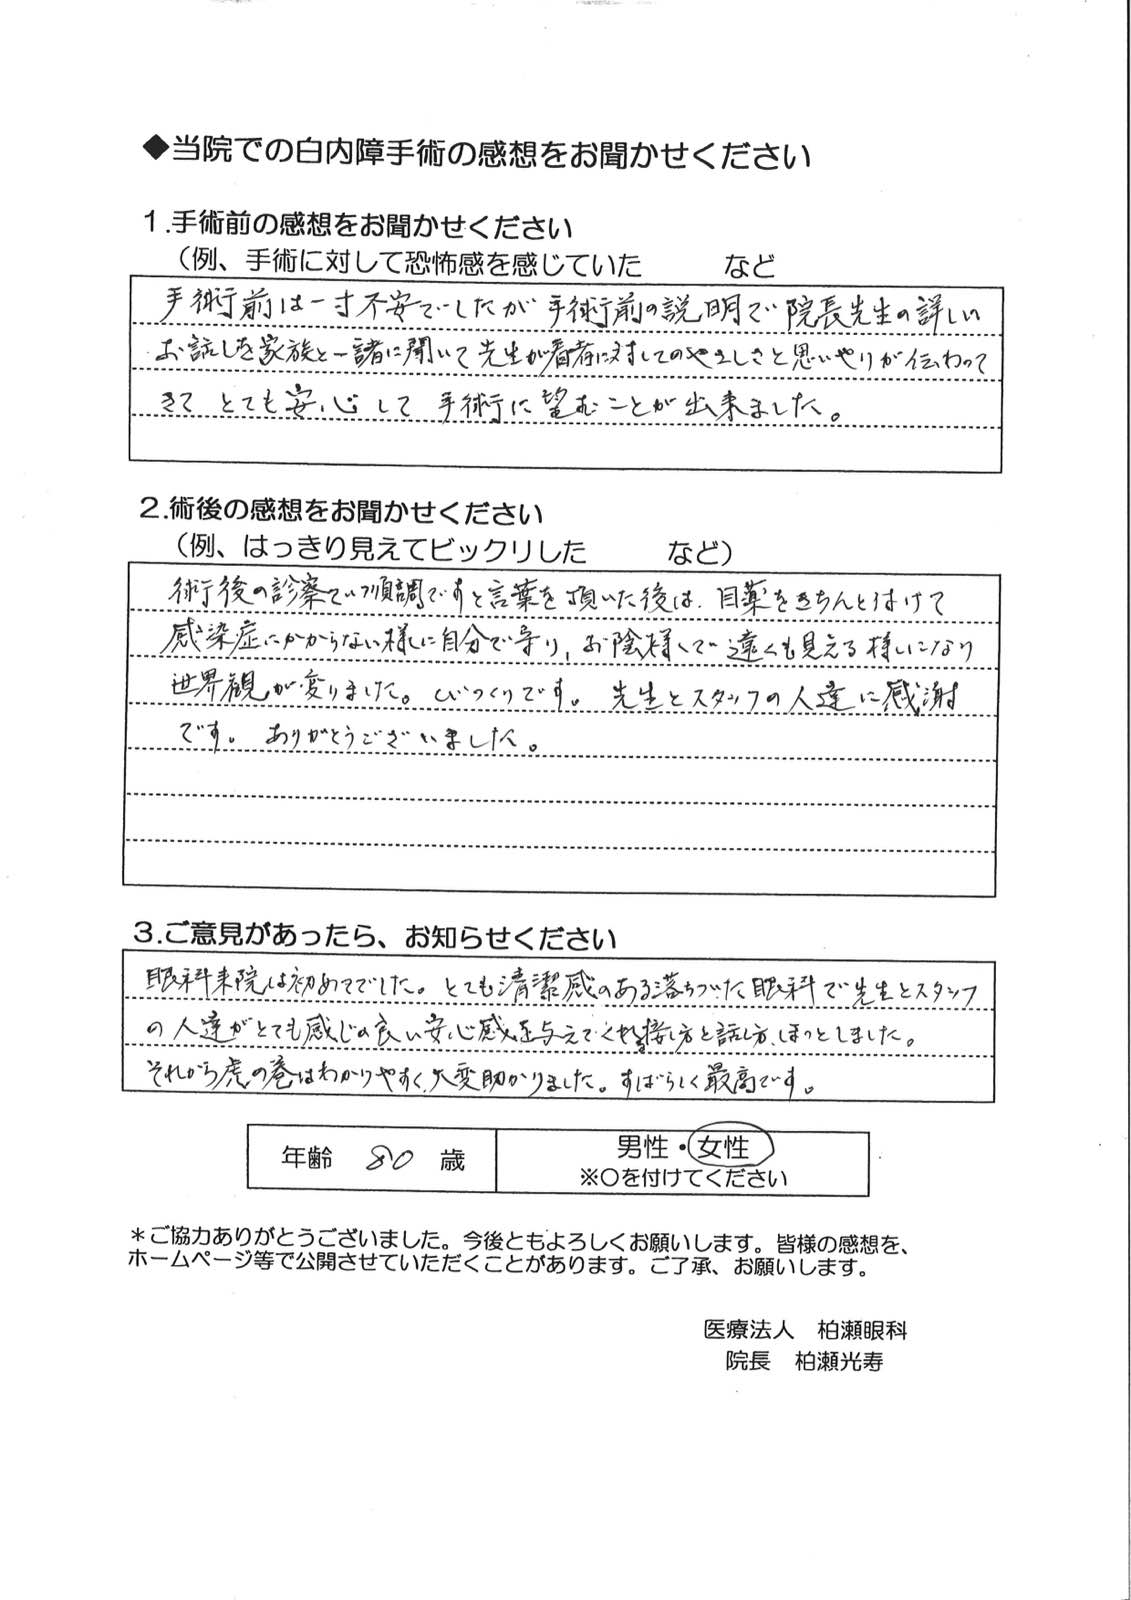 ◆当院での白内障手術の感想をお聞かせください
１.手術前の感想をお聞かせください
（例、手術に対して恐怖感を感じていた　　　など
手術前は一寸不安でしたが手術前の説明で院長先生の詳しい
お話しを家族と一諸に聞いて先生が看者に対してのやさしさと思いやりが伝わって
きてとても安心して手術に望むことが出来ました。
２.術後の感想をお聞かせください
（例、はっきり見えてビックリした　　　など）
術後の診察で順調ですと言葉を頂いた後は、目薬をきちんと付けて
感染症にかからない様に自分で守り、お陰様で遠くも見える様になり
世界観が変りました。びっくりです。先生とスタッフの人達に感謝
です。ありがとうございました。
３.ご意見があったら、お知らせください
眼科来院は初めてでした。とても清潔感のある落ちづいた眼科で先生とスタッフ
の人達がとても感じの良い安心感を与えてくれる接し方と話し方、ほっとしました。
それから虎の巻はわかりやすく、大変助かりました。すばらしく最高です。
年齢　80　歳
男性・女性
※○を付けてください
＊ご協力ありがとうございました。今後ともよろしくお願いします。皆様の感想を、
ホームページ等で公開させていただくことがあります。ご了承、お願いします。
医療法人　柏瀬眼科
院長　柏瀬光寿